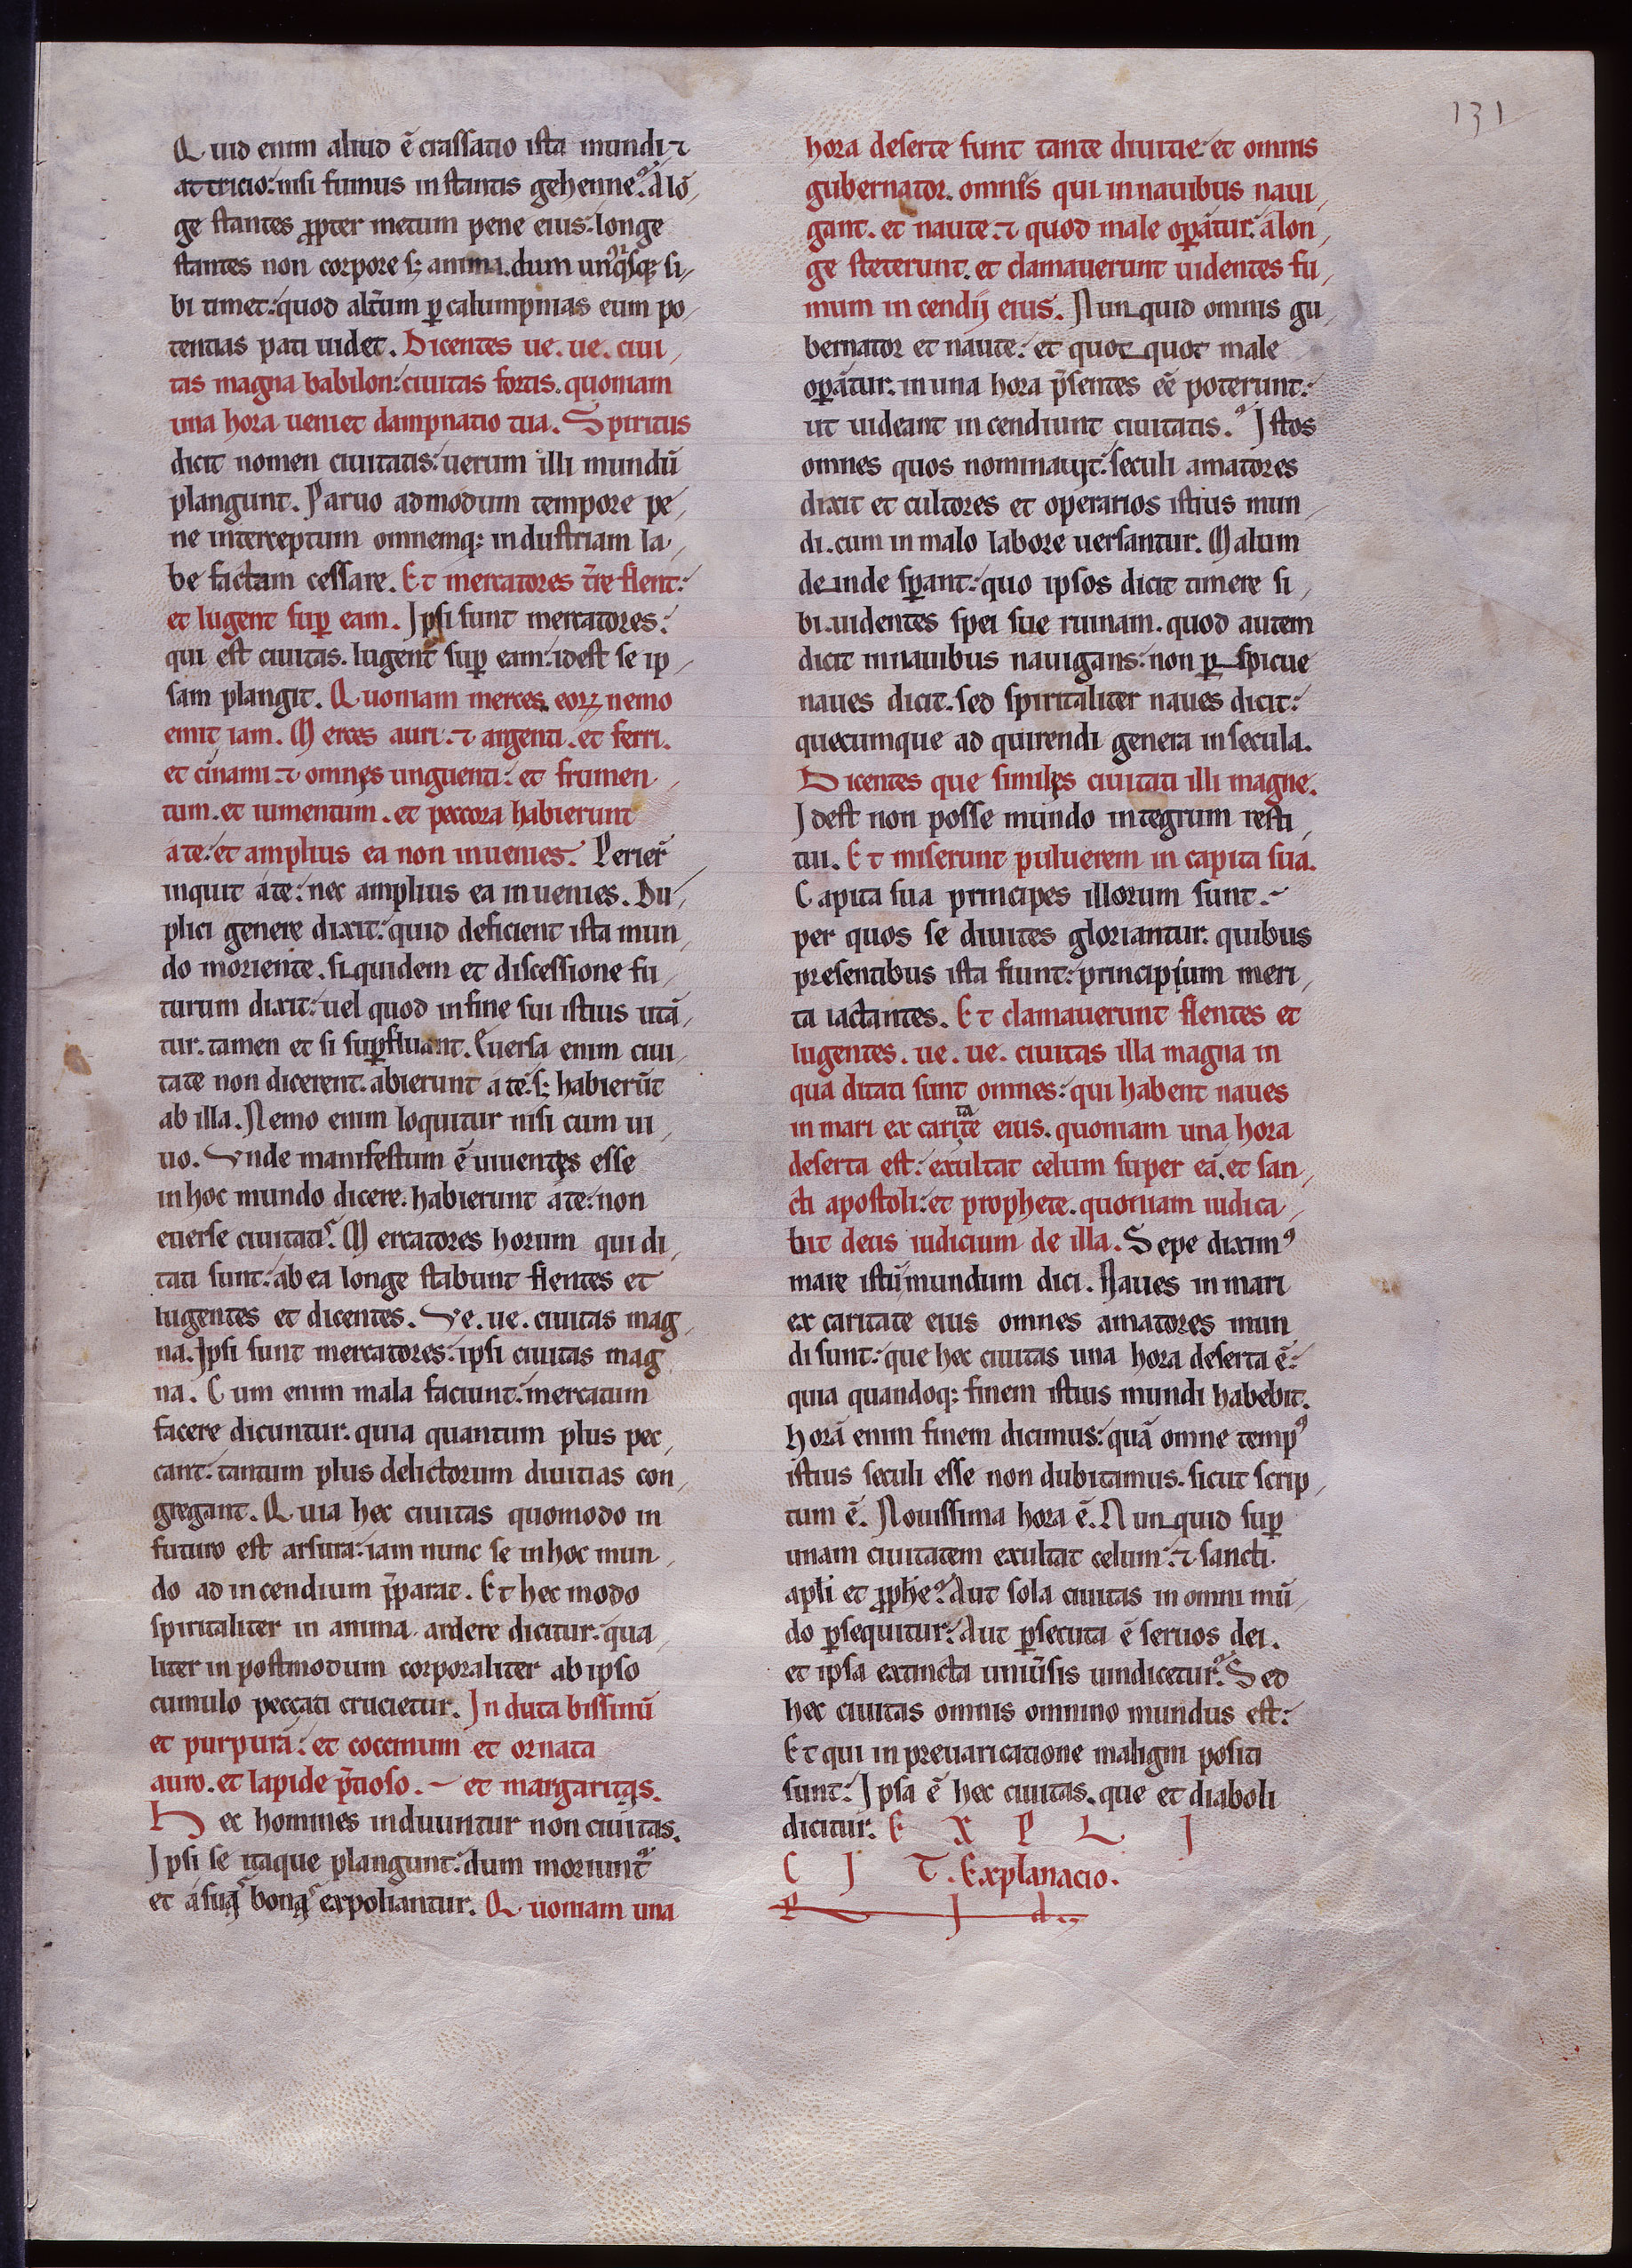 131
Quid enim aliud ē crassatio ista mundi ⁊
attricio: nisi fumus instantis gehenne? A lō
ge stantes ꝓpter metum pene eius: longe
stantes non corpore sꝫ anima. dum unꝰqͥsqꝫ si
bi timet: quod altūm ꝑ calumpnias eum po
tentias pati uidet. Dicentes ue. ue. ciui
tas magna babilon: ciuitas fortis. quoniam
una hora ueniet dampnatio tua. Spiritus
dicit nomen ciuitatis: uerum illi mundū
plangunt. Paruo admodum tempore pe
ne interceptum omnemqꝫ industriam la
be factam cessare. Et mercatores t̄re flent:
et lugent suꝑ eam. Ipsi sunt mercatores:
qui est ciuitas. lugent suꝑ eam: idest se ip
sam plangit. Quoniam merces eoꝝ nemo
emit iam. Merces auri. ⁊ argenti. et ferri.
et cinami. ⁊ omnes unguenti: et frumen
tum. et iumentum. et peccora habierunt
a te: et amplius ea non inuenies. Perier̄
inquit a te: nec amplius ea inuenies. Du
plici genere dixit: quid deficient ista mun
do moriente. siquidem et discessione fu
turum dixit: uel quod in fine sui istius utā
tur. tamen et si suꝑfluant. Euersa enim ciui
tate non dicerent. abierunt a te: sꝫ habierūt
ab illa. Nemo enim loquitur nisi cum ui
uo. Unde manifestum ē uiuentes esse
in hoc mundo dicere. habierunt a te: non
euerse ciuitati. Mercatores horum qui di
tati sunt: ab ea longe stabunt flentes et
lugentes et dicentes. Ve. ue. ciuitas mag
na. Ipsi sunt mercatores: ipsi ciuitas mag
na. Cum enim mala faciunt: mercatum
facere dicuntur. quia quantum plus pec
cant: tantum plus delictorum diuitias con
gregant. Quia hec ciuitas quomodo in
futuro est arsura: iam nunc se in hoc mun
do ad incendium p̄parat. Et hec modo
spiritaliter in anima ardere dicitur: qua
liter in postmodum corporaliter ab ipso
cumulo peccati crucietur. Induta bissinū
et purpurā: et coccinum et ornata
auro. et lapide p̄tioso. et margaritas.
Hec homines induuntur non ciuitas.
Ipsi se itaque plangunt: dum moriunt᷑
et a suas bonas expoliantur. Quoniam una
hora deserte sunt tante diuitie: et omnis
gubernator. omnis qui in nauibus naui
gant. et naute. ⁊ quod male oꝑātur: a lon
ge steterunt. et clamauerunt uidentes fu
mum incendij eius. Nunquid omnis gu
bernator et naute: et quot quot male
oꝑātur. in una hora p̄sentes eē poterunt:
ut uideant incendiunt ciuitatis? Istos
omnes quos nominauit: seculi amatores
dixit et cultores et operarios istius mun
di. cum in malo labore uersantur. Malum
deinde sꝑant: quo ipsos dicit timere si
bi. uidentes spei sue ruinam. quod autem
dicit in nauibus nauigans: non ꝑspicue
naues dicit. sed spiritaliter naues dicit:
quecumque adquirendi genera in secula.
Dicentes que similes ciuitati illi magne.
Idest non posse mundo integrum resti
tui. Et miserunt puluerem in capita sua.
Capita sua principes illorum sunt.
per quos se diuites gloriantur. quibus
presentibus ista fiunt: principium meri
ta iactantes. Et clamauerunt flentes et
lugentes. ue. ue. ciuitas illa magna in
qua ditati sunt omnes: qui habent naues
in mari ex caritate eius. quoniam una hora
deserta est: exultat celum super eā. et san
cti apostoli: et prophete. quoniam iudica
bit deus iudicium de illa. Sepe diximꝰ
mare istū mundum dici. Naues in mari
ex caritate eius omnes amatores mun
di sunt: que hec ciuitas una hora deserta ē:
quia quandoqꝫ finem istius mundi habebit.
Horā enim finem dicimus: quā omne tempꝰ
istius seculi esse non dubitamus. sicut scrip
tum ē. Nouissima hora ē. Nunquid suꝑ
unam ciuitatem exultat celum: ⁊ sancti
apl̄i et ꝓphe? Aut sola ciuitas in omni mū
do ꝑsequitur? Aut ꝑsecuta ē seruos dei.
et ipsa extincta uniūsis uindicetur? Sed
hec ciuitas omnis omnino mundus est:
Et qui in preuaricatione maligni positi
sunt: Ipsa ē hec ciuitas. que et diaboli
dicitur. E X P L I
C I T. Explanacio.